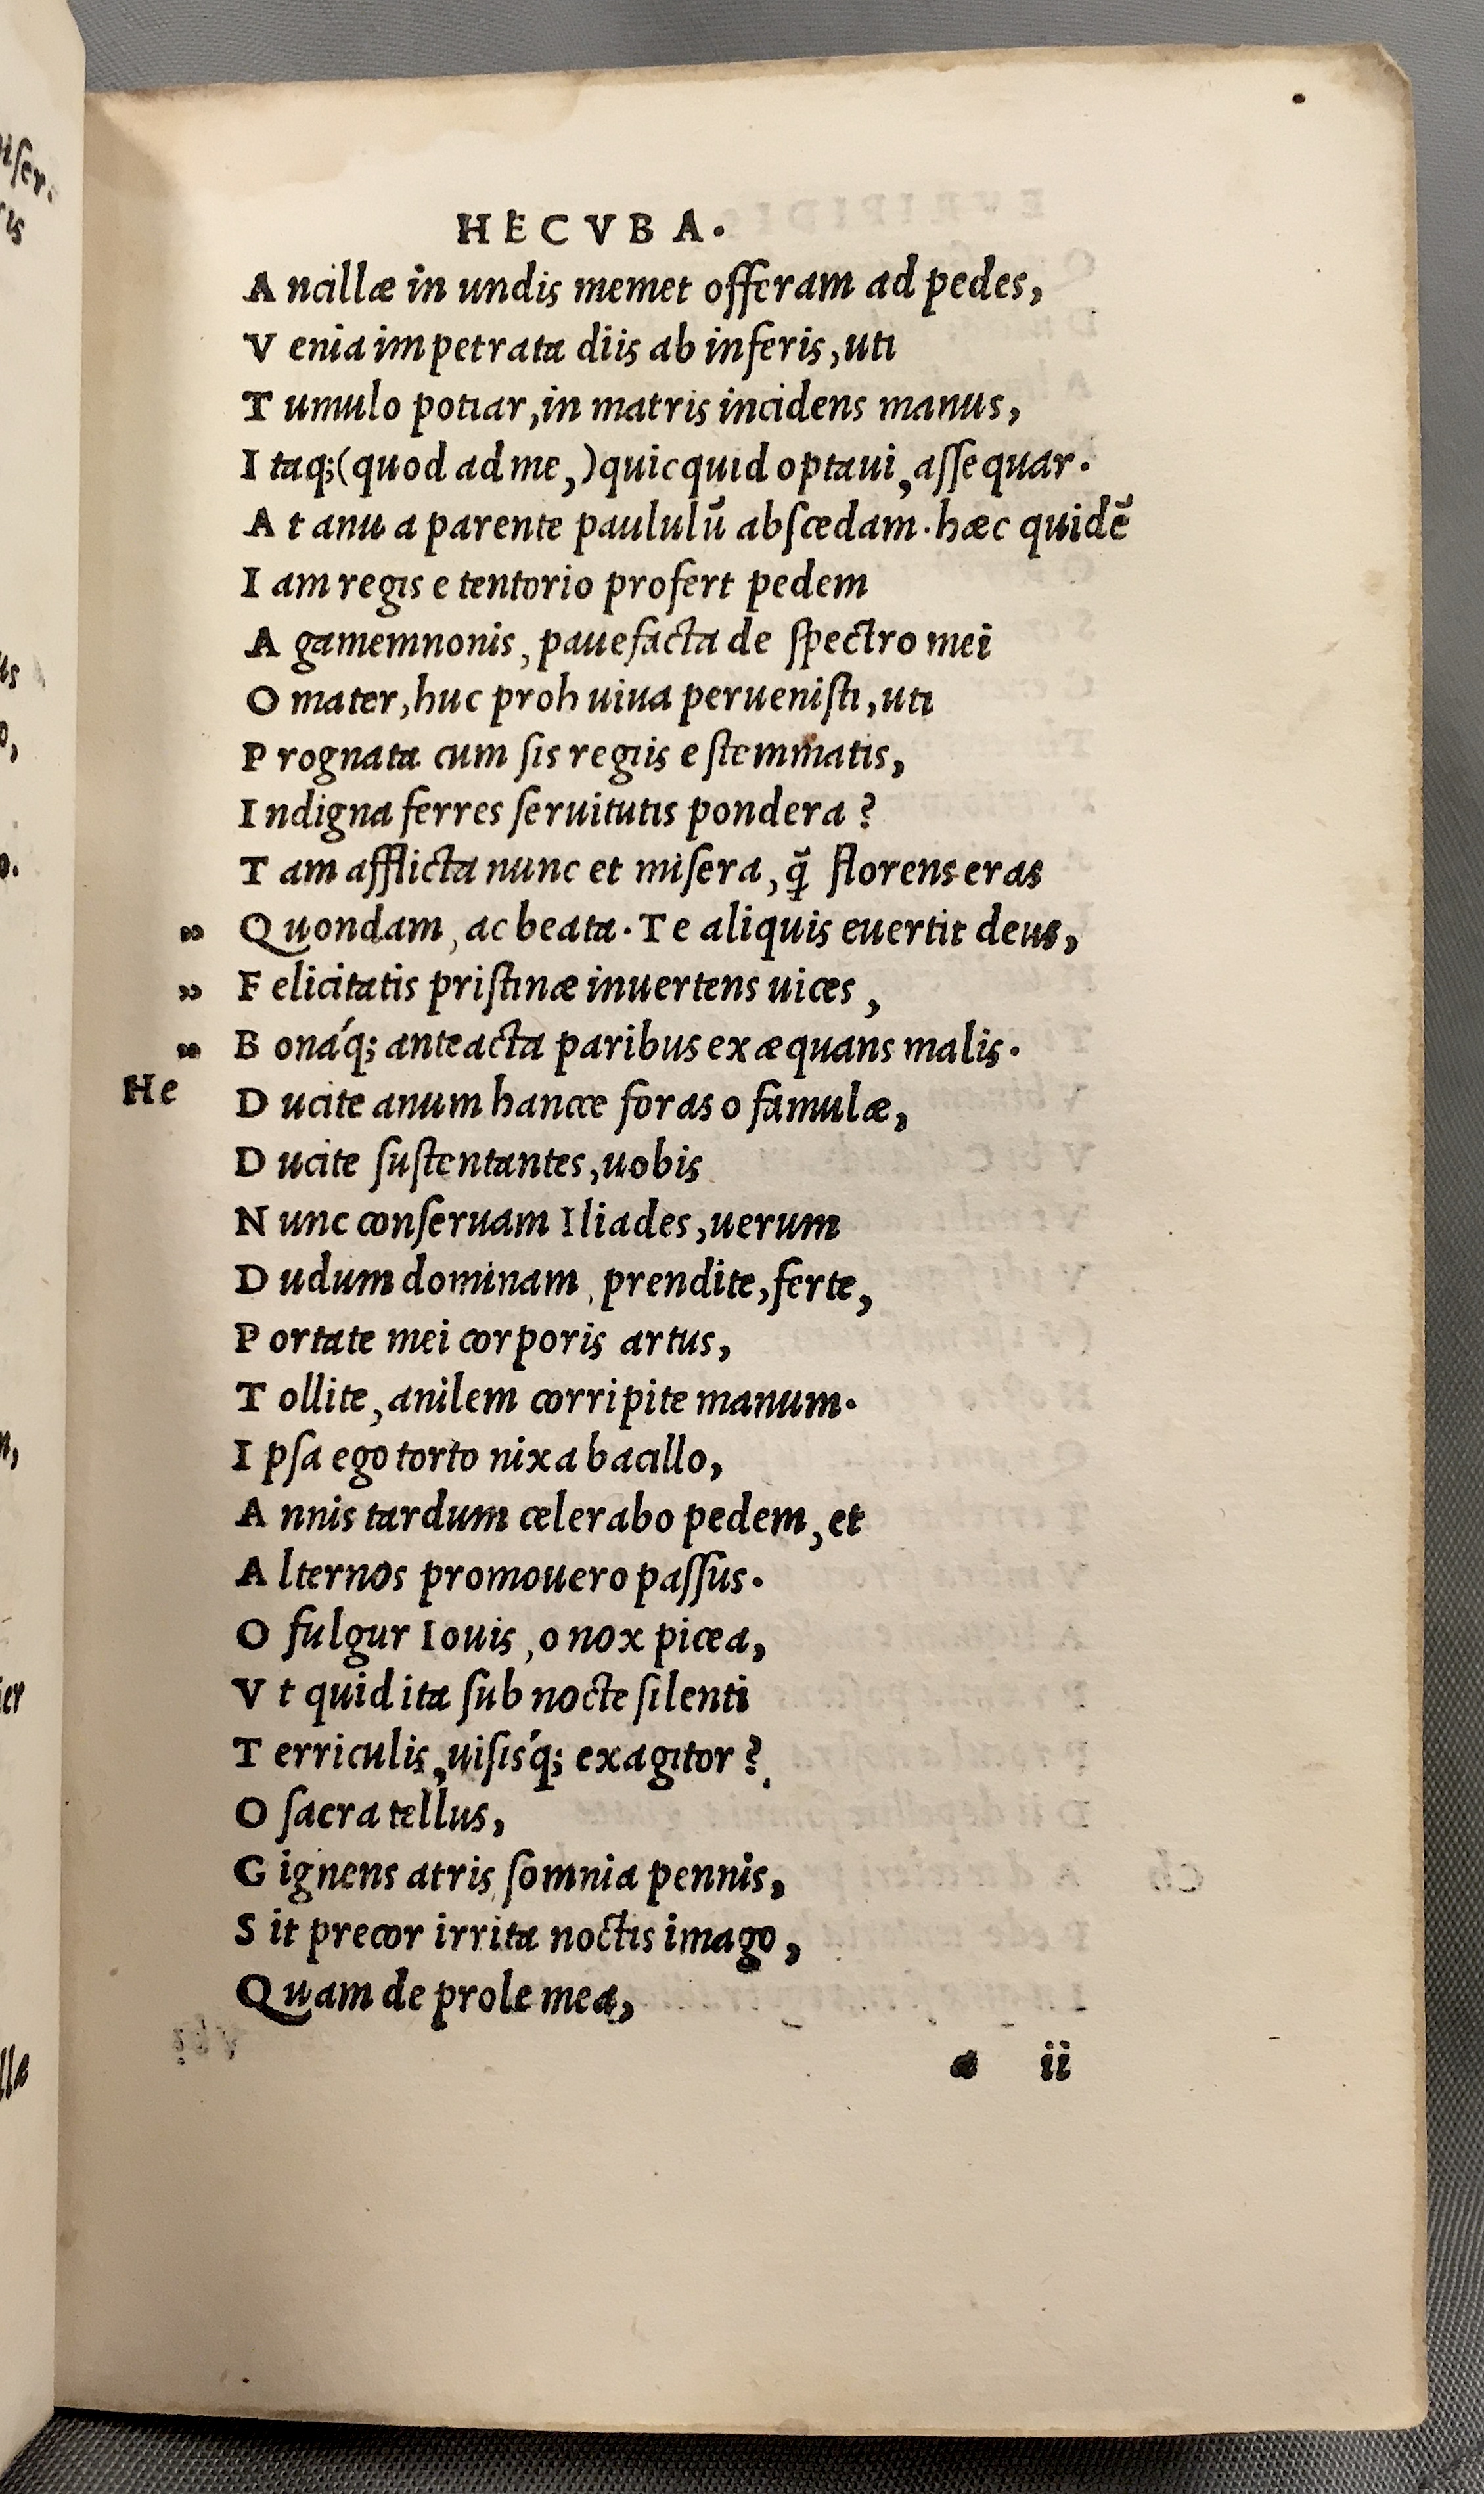 HECVBA.
Ancillæ in undis memet offeram ad pedes,
Venia impetrata diis ab inferis, uti
Tumulo potiar, in matris incidens manus,
Itaq; (quod ad me,) quicquid optaui, assequar.
At anu a parente paululū abscedam. hæc quidē
Iam regis e tentorio profert pedem
Agamemnonis, pauefacta de spectro mei
O mater, huc proh uiua peruenisti, uti
Prognata cum sis regiis e stemmatis,
Indigna ferres seruitutis pondera?
Tam afflicta nunc et misera, q̄ florens eras
„ Quondam, ac beata. Te aliquis euertit deus,
„ Felicitatis pristinæ inuertens uices,
„ Bonáq; anteacta paribus exæquans malis.
He Ducite anum hancce foras o famulæ,
Ducite sustentantes, uobis
Nunc conseruam Iliades, uerum
Dudum dominam, prendite, ferte,
Portate mei corporis artus,
Tollite, anilem corripite manum.
Ipsa ego torto nixa bacillo,
Annis tardum celerabo pedem, et
Alternos promouero passus.
O fulgur Iouis, o nox picea,
Vt quid ita sub nocte silenti
Terriculis, uisis'q; exagitor?
O sacra tellus,
Gignens atris somnia pennis,
Sit precor irrita noctis imago,
Quam de prole mea,
a ii